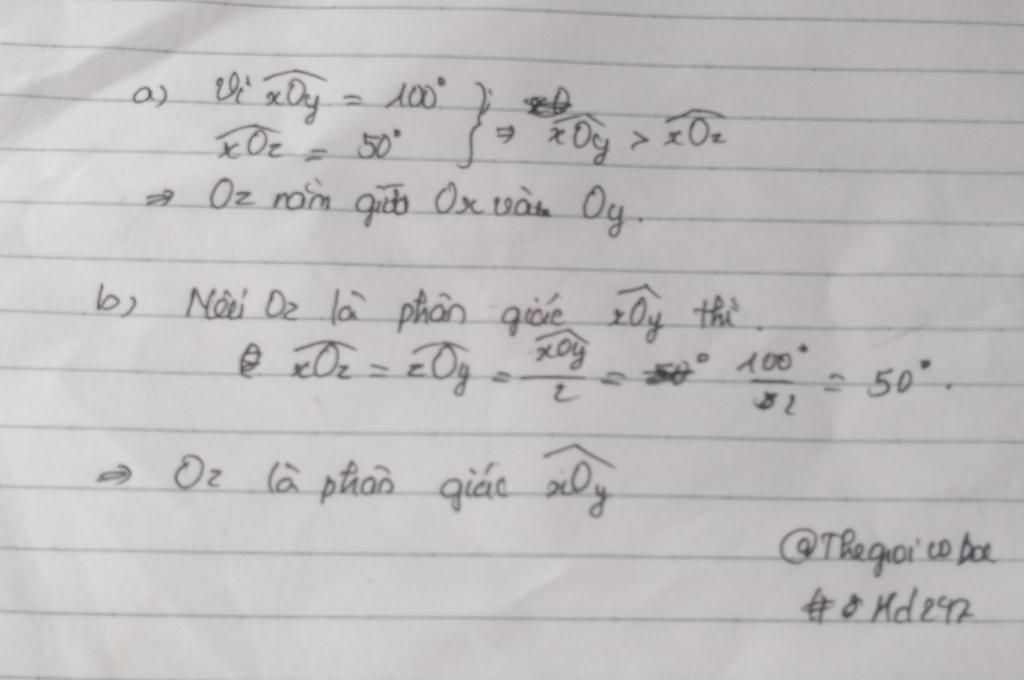 a) Vì xOy = 100°
xOz = 50° } ⇒ xOy > xOz
⇒ Oz nằm giữa Ox và Oy.
b) Nếu Oz là phân giác xOy thì
xOz = zOy = xOy/2 = 100°/2 = 50°.
⇒ Oz là phân giác xOy
@Thegioi